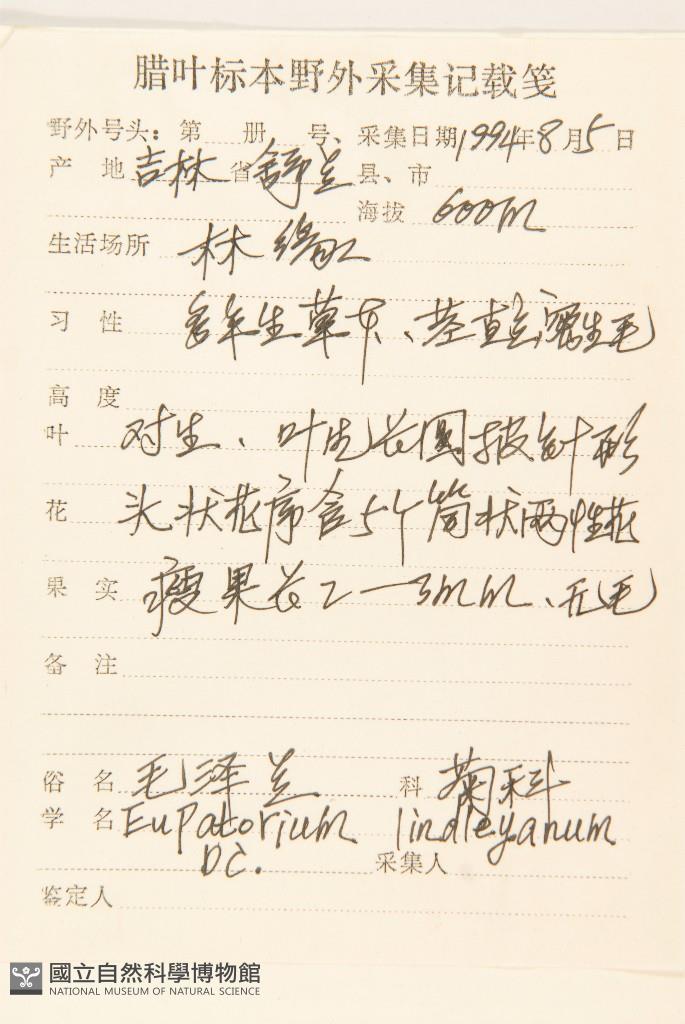 腊叶标本野外采集记载笺
野外号头：第 册 号、采集日期1994年8月5日
产 地 吉林省舒兰县、市
海拔 600m
生活场所 林缘
习 性 多年生草本、茎直立密生毛
高 度
叶 对生、叶片长圆披针形
头状花序含5个筒状两性花
花
果 实 瘦果长2—3mm、无毛
备 注
俗 名 毛泽兰 科 菊科
学 名 Eupatorium lindleyanum
DC. 采集人
鉴定人
國立自然科學博物館
NATIONAL MUSEUM OF NATURAL SCIENCE